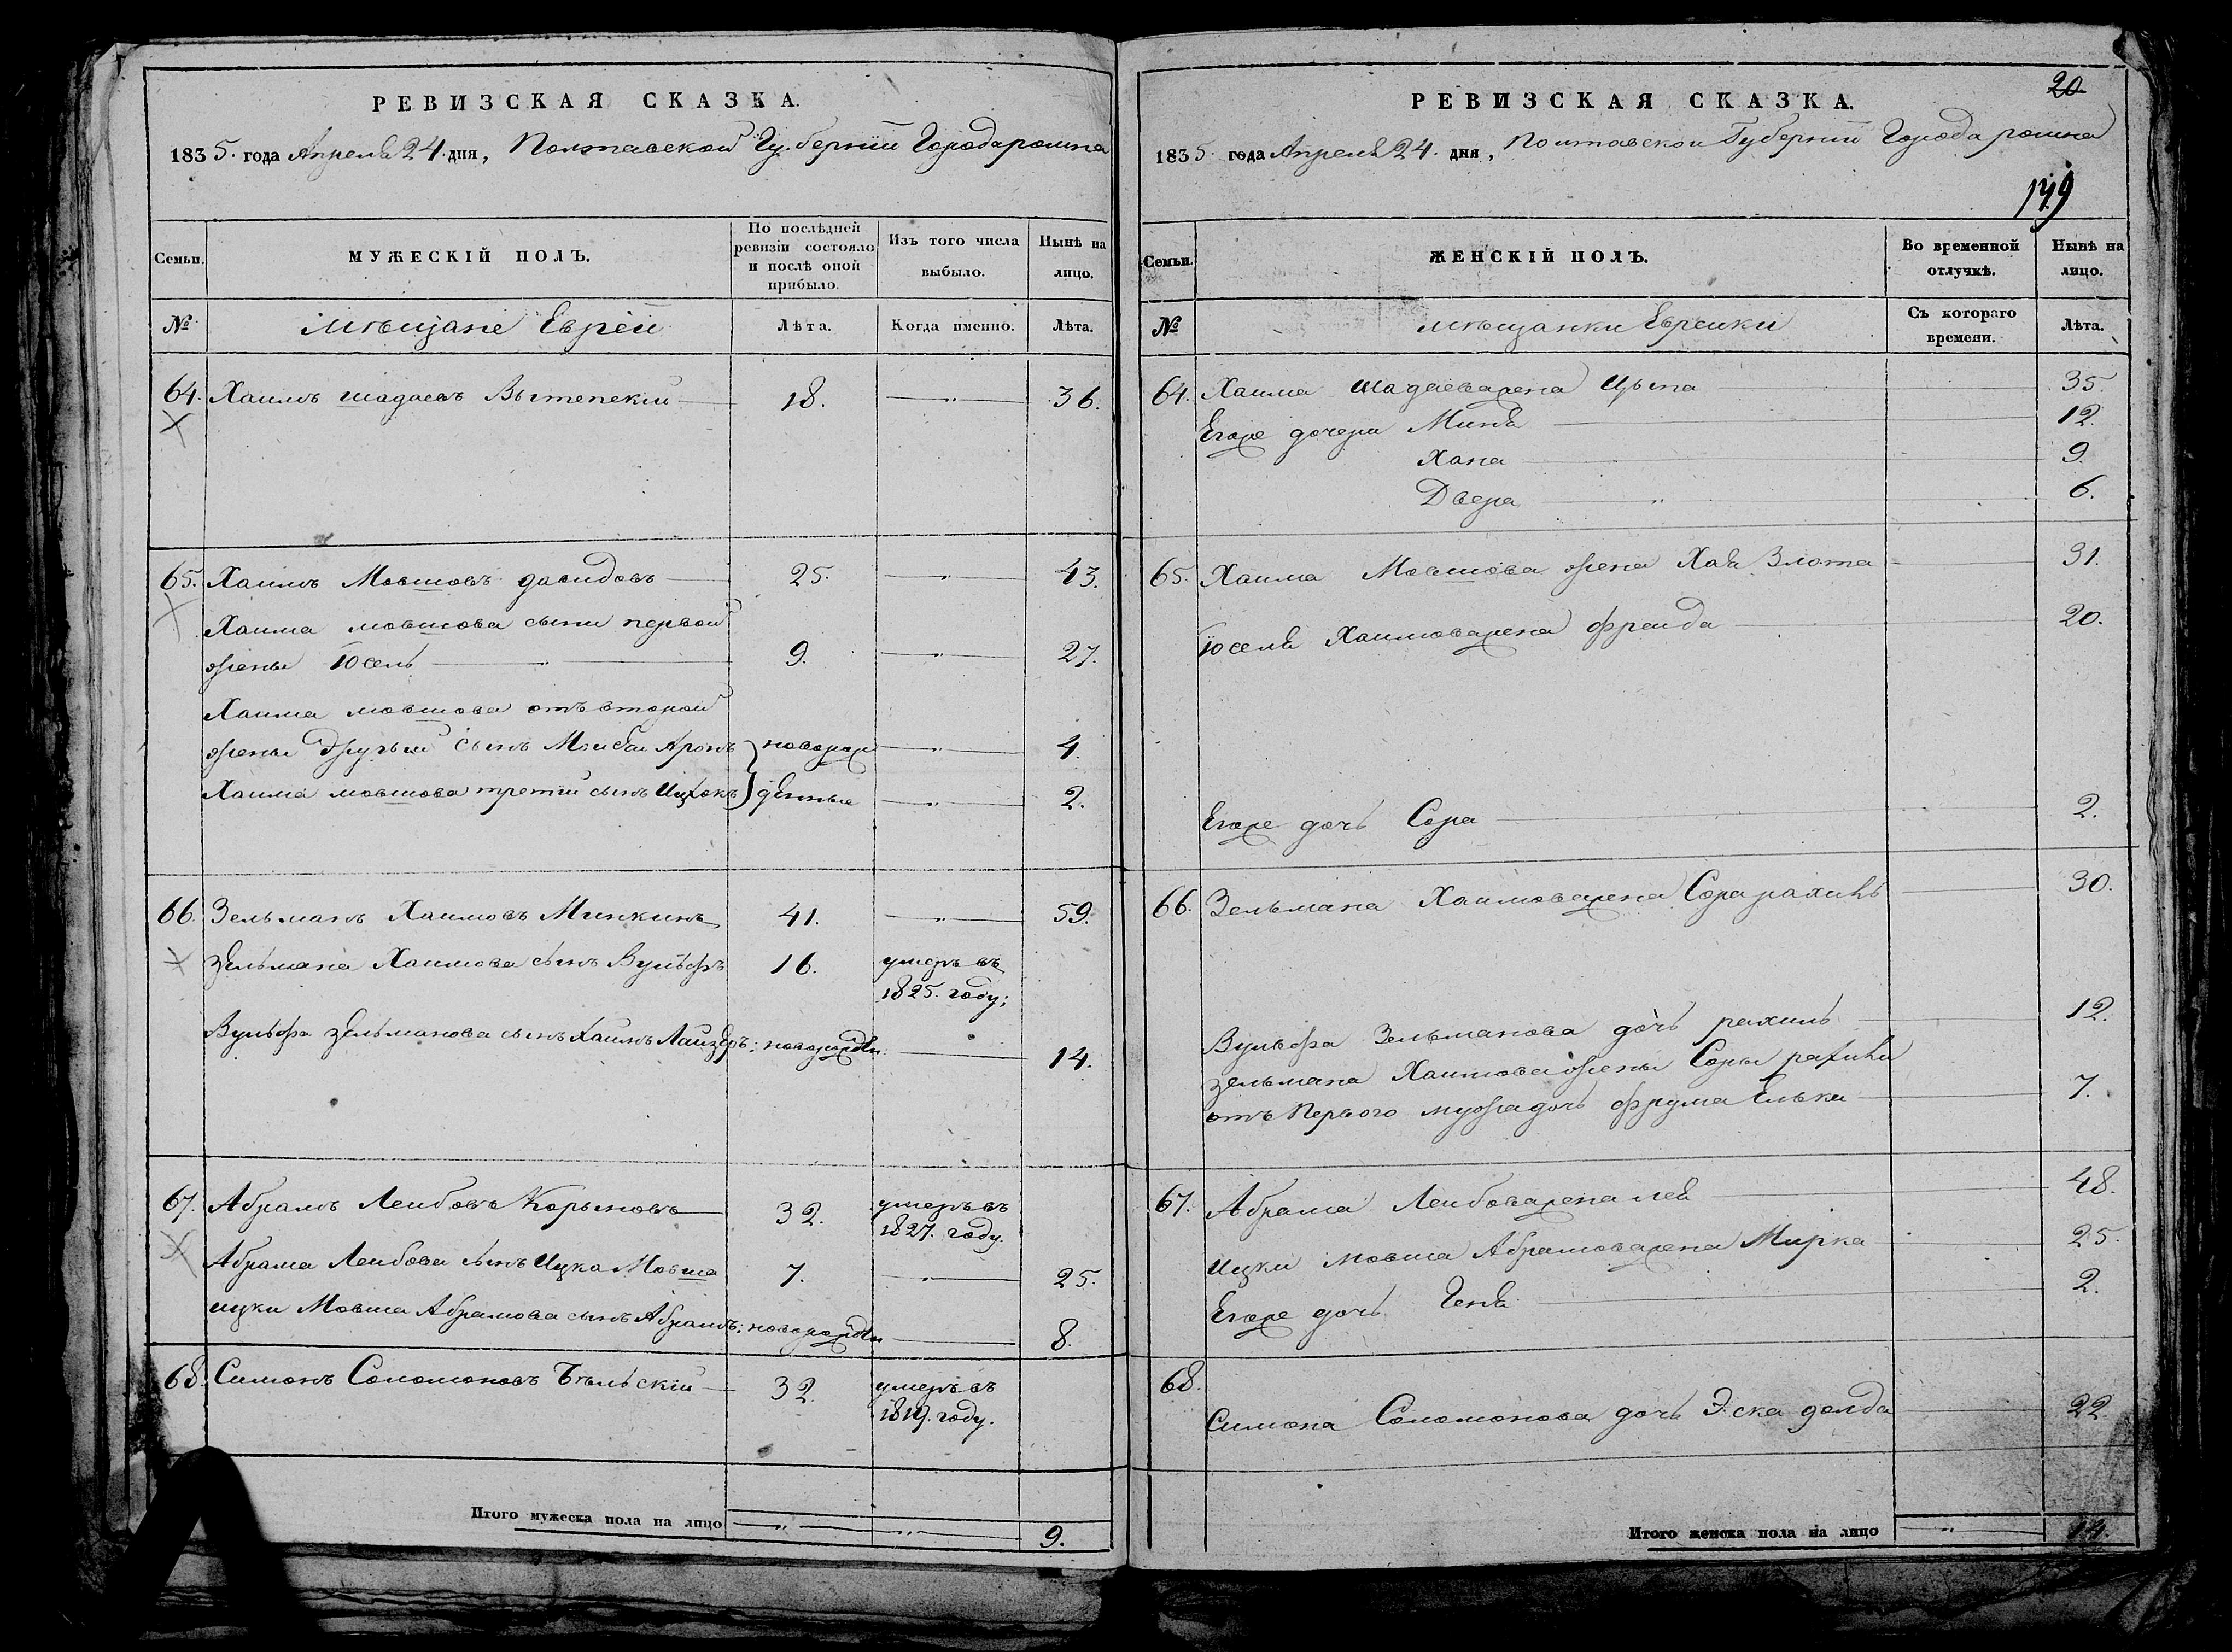 РЕВИЗСКАЯ СКАЗКА.
1835. года Апреля 24. дня, Полтавской Губернии Города ромна
Семьи.
МУЖЕСКІЙ ПОЛЪ.
По послѣдней
ревизіи состояло
и послѣ оной
прибыло.
Изъ того числа
выбыло.
Нынѣ на
лицо.
№
мѣщане Евреи
Лѣта.
Когда именно.
Лѣта.
64. Хаимъ шадаевъ 18. 36.
65. Хаимъ Мовшовъ давидовъ 25. 43.
Хаима мовшова сынъ первой
жены Іосель 9. 27.
Хаима мовшова отъ второй
жены другий сынъ Аронъ новорож 4.
Хаима мовшова третий сынъ Ицхокъ денные 2.
66. Зельманъ Хаимовъ Минкинъ 41. 59.
зельмана Хаимова сынъ Вульфъ 16. умеръ въ
1825. году;
Вульфа зельманова сынъ Хаимъ Лаизеръ: новорожден 14.
67. Абрамъ Леибовъ 32. умеръ въ
1827. году.
Абрама Леибова сынъ Ицка Мовша 7. 25.
ицки Мовши Абрамова сынъ Абрамъ: новорожден 8.
68. Симонъ Соломоновъ Бѣльскій 32. умеръ въ
1819. году.
Итого мужеска пола на лицо 9.
20
РЕВИЗСКАЯ СКАЗКА.
1835 года Апреля 24. дня, Полтавской Губернии Города ромна
149
Семьи.
ЖЕНСКІЙ ПОЛЪ.
Во временной
отлучкѣ.
Нынѣ на
лицо.
№
мѣщанки Евреики
Съ котораго
времени.
Лѣта.
64. Хаима шадаева жена Цыпа 35.
Егоже дочери Миня 12.
Хана 9.
Двера 6.
65. Хаима Мовшова жена Хая Злота 31.
Іоселя Хаимова жена фреида 20.
Егоже дочь Сора 2.
66. Зельмана Хаимова жена Сора рахиль 30.
Вульфа Зельманова дочь рахиль 12.
зельмана Хаимова жены Соры рахили
отъ Первого мужа дочь фрума Елька 7.
67. Абрама Леибова жена лея 48.
ицки мовши Абрамова жена Мирка 25.
Егоже дочь Геня 2.
68.
Симона Соломонова дочь Эска долда 22.
Итого женска пола на лицо 14.